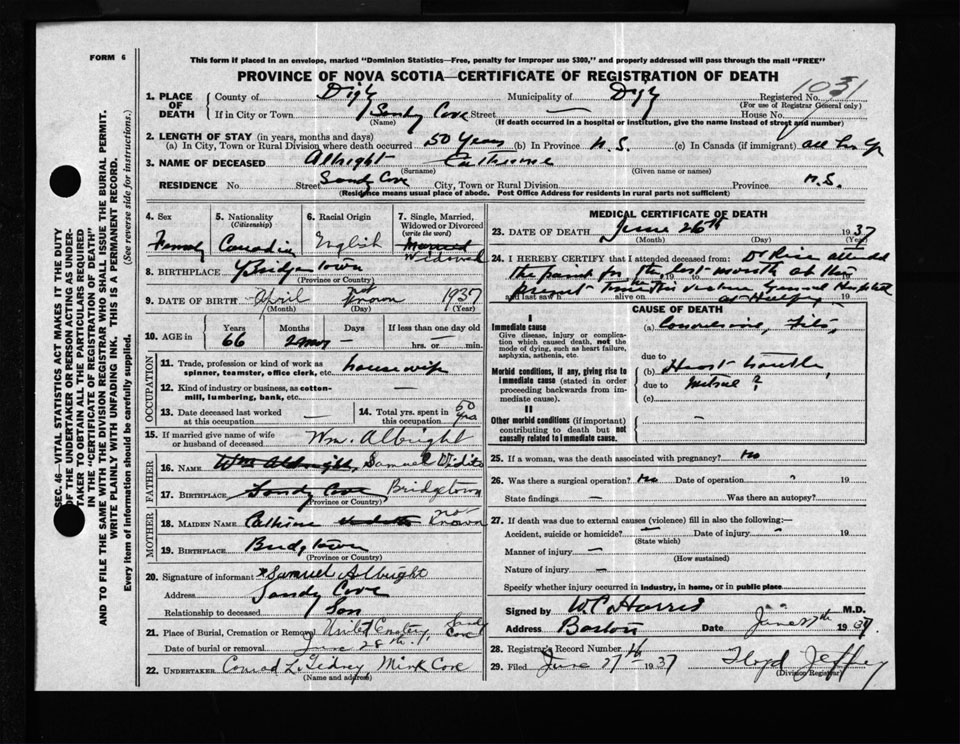 FORM 6
This form if placed in an envelope, marked "Dominion Statistics—Free, penalty for improper use $300," and properly addressed will pass through the mail "FREE"
PROVINCE OF NOVA SCOTIA—CERTIFICATE OF REGISTRATION OF DEATH
1. PLACE OF DEATH
County of Digby Municipality of Digby Registered No. 1031
(For use of Registrar General only)
If in City or Town Sandy Cove Street — House No.
(Name) (If death occurred in a hospital or institution, give the name instead of street and number)
2. LENGTH OF STAY (in years, months and days)
(a) In City, Town or Rural Division where death occurred 50 Years (b) In Province N.S. (c) In Canada (if immigrant) all her
3. NAME OF DECEASED Albright Catherine
(Surname) (Given name or names)
RESIDENCE No. Street Sandy Cove City, Town or Rural Division Province N.S.
(Residence means usual place of abode. Post Office Address for residents in rural parts not sufficient)
4. Sex
5. Nationality (Citizenship)
6. Racial Origin
7. Single, Married, Widowed or Divorced (write the word)
Canadian English Married
Widowed
8. BIRTHPLACE Bridgetown
(Province or Country)
9. DATE OF BIRTH April not known 1937
(Month) (Day) (Year)
10. AGE in Years Months Days If less than one day old
66 2 mos — hrs. or min.
OCCUPATION
11. Trade, profession or kind of work as spinner, teamster, office clerk, etc. housewife
12. Kind of industry or business, as cotton-mill, lumbering, bank, etc. —
13. Date deceased last worked at this occupation —
14. Total yrs. spent in this occupation 50 yrs
15. If married give name of wife or husband of deceased Wm. Albright
FATHER
16. NAME Wm Albright, Samuel
17. BIRTHPLACE Sandy Cove Bridgetown
(Province or Country)
MOTHER
18. MAIDEN NAME not known
19. BIRTHPLACE Bridgetown
(Province or Country)
20. Signature of informant x Samuel Albright
Address Sandy Cove
Relationship to deceased Son
21. Place of Burial, Cremation or Removal Sandy Cove
Date of burial or removal June 28th
22. UNDERTAKER Conrad L. Gidney Mink Cove
(Name and address)
MEDICAL CERTIFICATE OF DEATH
23. DATE OF DEATH June 26th 1937
(Month) (Day) (Year)
24. I HEREBY CERTIFY that I attended deceased from: Dr Rice attended
the last month at
present General Hospital
and last saw h alive on at Halifax, 19
CAUSE OF DEATH
I
Immediate cause
Give disease, injury or complication which caused death, not the mode of dying, such as heart failure, asphyxia, asthenia, etc.
(a) Fits,
due to
Morbid conditions, if any, giving rise to immediate cause (stated in order proceeding backwards from immediate cause).
(b) Heart trouble,
due to ?
(c)
II
Other morbid conditions (if important) contributing to death but not causally related to immediate cause. —
25. If a woman, was the death associated with pregnancy? No
26. Was there a surgical operation? No Date of operation " 19
State findings — Was there an autopsy?
27. If death was due to external causes (violence) fill in also the following:—
Accident, suicide or homicide? — Date of injury " 19
(State which)
Manner of injury —
(How sustained)
Nature of injury —
Specify whether injury occurred in industry, in home, or in public place
Signed by W.C. Harris M.D.
Address Barton Date June 27th 1937
28. Registrar's Record Number
29. Filed June 27th 1937 Floyd Jeffrey
(Division Registrar)
SEC. 46—VITAL STATISTICS ACT MAKES IT THE DUTY
OF THE UNDERTAKER OR PERSON ACTING AS UNDER-
TAKER TO OBTAIN ALL THE PARTICULARS REQUIRED
IN THE "CERTIFICATE OF REGISTRATION OF DEATH"
AND TO FILE THE SAME WITH THE DIVISION REGISTRAR WHO SHALL ISSUE THE BURIAL PERMIT.
WRITE PLAINLY WITH UNFADING INK. THIS IS A PERMANENT RECORD.
Every item of information should be carefully supplied. (See reverse side for instructions.)